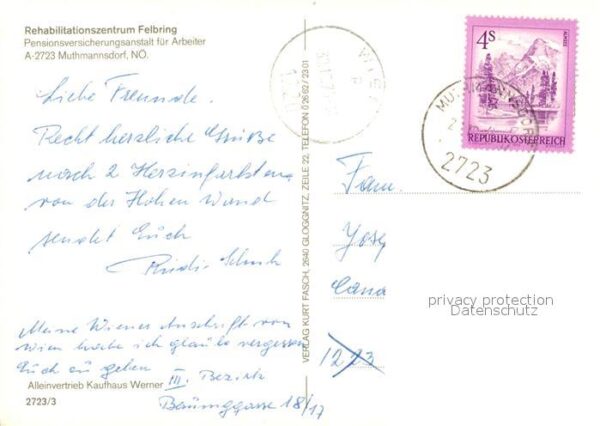 Rehabilitationszentrum Felbring
Pensionsversicherungsanstalt für Arbeiter
A-2723 Muthmannsdorf, NÖ.
Liebe Freunde.
Recht herzliche Grüße
nach 2 Herzinfarkten
von der Hohen Wand
sendet Euch
Rudi
Meine Wiener Anschrift von
Wien habe ich glaube vergessen
Euch zu geben
III. Bezirk
Baumgasse 18/17
Alleinvertrieb Kaufhaus Werner
2723/3
VERLAG KURT FASCH, 2640 GLOGGNITZ, ZEILE 22, TELEFON 0 26 62 / 23 01
4S
REPUBLIK ÖSTERREICH
MUTHMANNSDORF
2723
Fam.
Josef
1223
privacy protection
Datenschutz